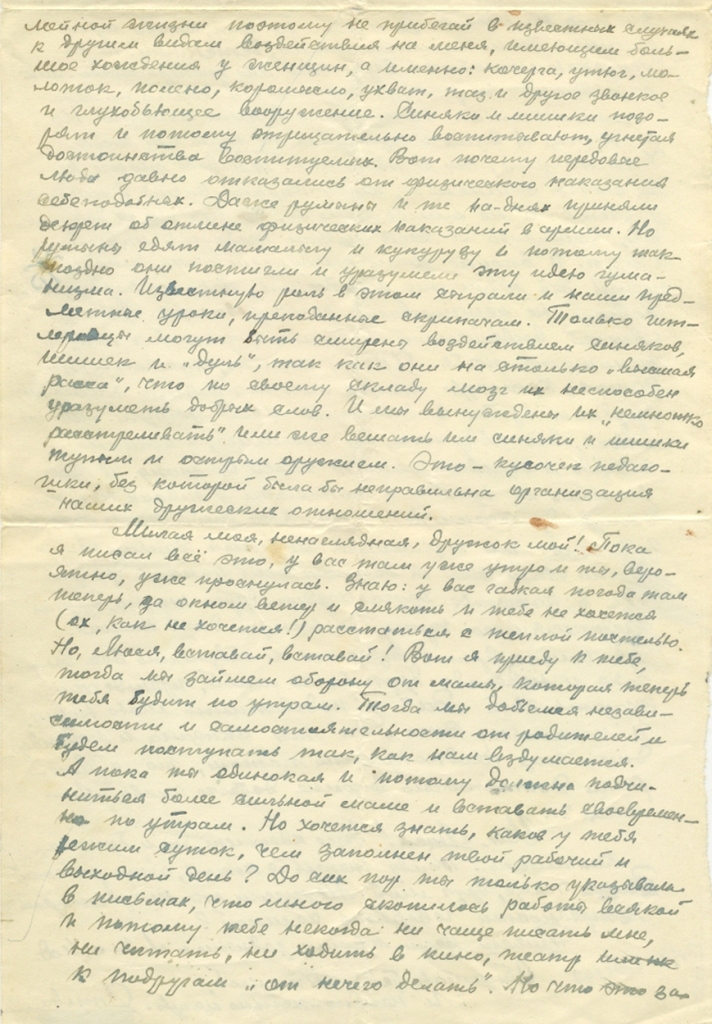 мейной жизни поэтому не прибегай в известных случаях
к другим видам воздействия на меня, имеющим боль-
шое хождения у женщин, а именно: кочерга, утюг, мо-
лоток, полено, коромысло, ухват, таз и другое звонкое
и глухобьющее вооружение. Синяки и шишки позо-
рят и потому отрицательно воспитывают, угнетая
достоинства воспитуемых. Вот почему передовые
люди давно отказались от физического наказания
себеподобных. Даже румыны и те на-днях приняли
декрет об отмене физических наказаний в армии. Но
румыны едят мамалыгу и кукурузу и потому так
поздно они постигли и уразумели эту идею гума-
низма. Известную роль в этом сыграли и наши пред-
метные уроки, преподанные скрипачам. Только гит-
леровцы могут быть смирены воздействием синяков,
шишек и „дуль", так как они на столько „высшая
расса", что по своему складу мозг их неспособен
уразуметь добрых слов. И мы вынуждены их „немножко
расстреливать" или же вешать им синяки и шишки
тупым и острым оружием. Это – кусочек педаго-
гики, без которой была бы неправильна организация
наших дружеских отношений.
Милая моя, ненаглядная, дружок мой! Пока
я писал всё это, у вас там уже утро и ты, веро-
ятно, уже проснулась. Знаю: у вас гадкая погода там
теперь, за окном ветер и слякоть и тебе не хочется
(ох, как не хочется!) расстаться с теплой постелью.
Но, Люся, вставай, вставай! Вот я приеду к тебе,
тогда мы займем оборону от мамы, которая теперь
тебя будит по утрам. Тогда мы добьемся незави-
симости и самостоятельности от родителей и
будем поступать так, как нам вздумается.
А пока ты одинокая и потому должна подчи-
ниться более сильной маме и вставать своевремен-
но по утрам. Но хочется знать, каков у тебя
режим суток, чем заполнен твой рабочий и
выходной день? До сих пор ты только указывала
в письмах, что много скопилось работы всякой
и потому тебе некогда ни чаще писать мне,
ни читать, ни ходить в кино, театр или
к подругам „от нечего делать". Но что это за